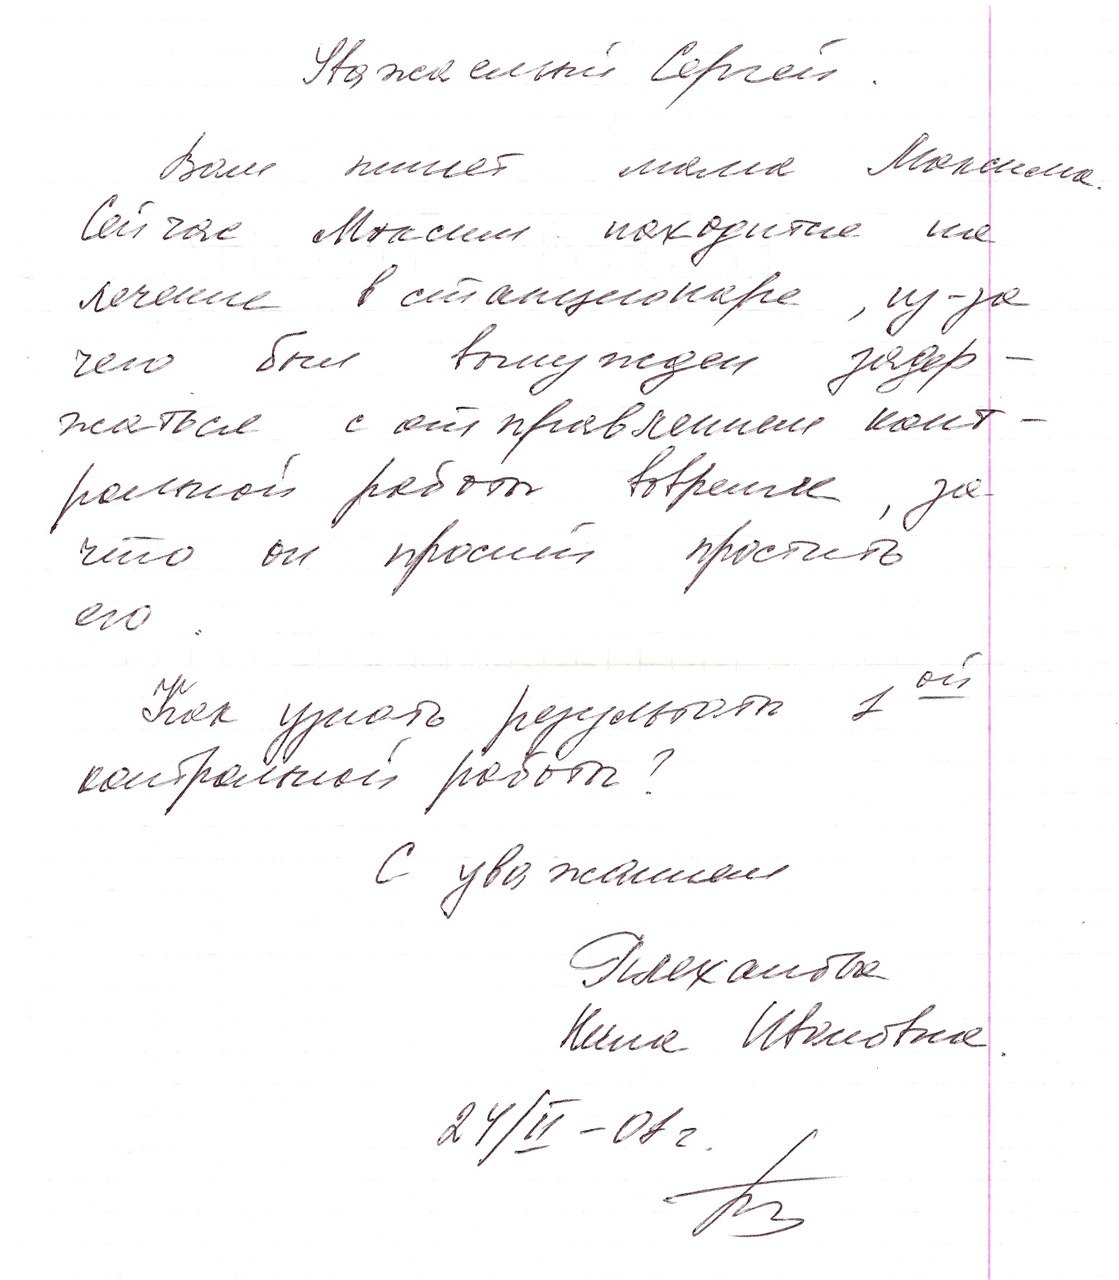 Уважаемый Сергей.
Вам пишет мама Максима.
Сейчас Максим находится на
лечение в стационаре, из-за
чего был вынужден задер-
жаться с отправлением конт-
рольной работы вовремя, за
что он просит простить
его.
Как узнать результаты 1ой
контрольной работы?
С уважением
Плеханова
Нина Ивановна.
24/II-08г.